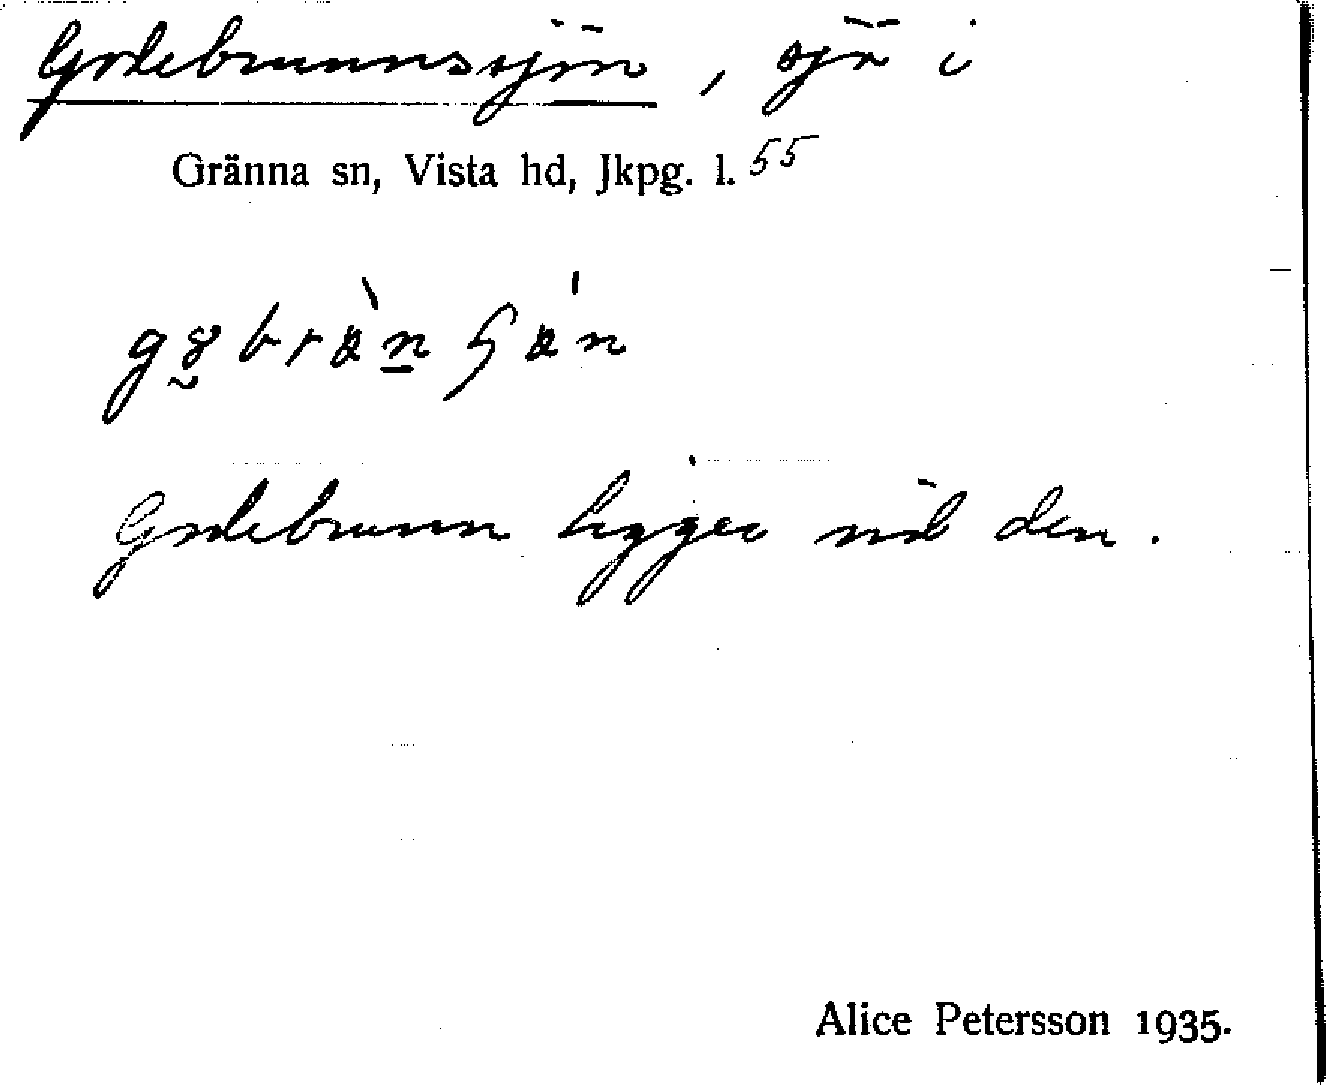 Godebrunnssjön, sjö i
Gränna sn, Vista hd, Jkpg. l. 55
Godebrunn ligger vid den.
Alice Petersson 1935.